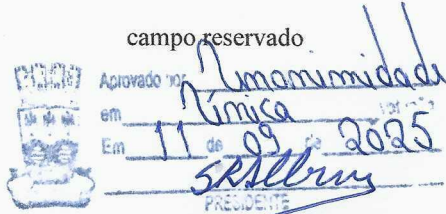 campo reservado
Aprovado por Unanimidade
em Única votação
Em 11 de 09 de 2025
PRESIDENTE